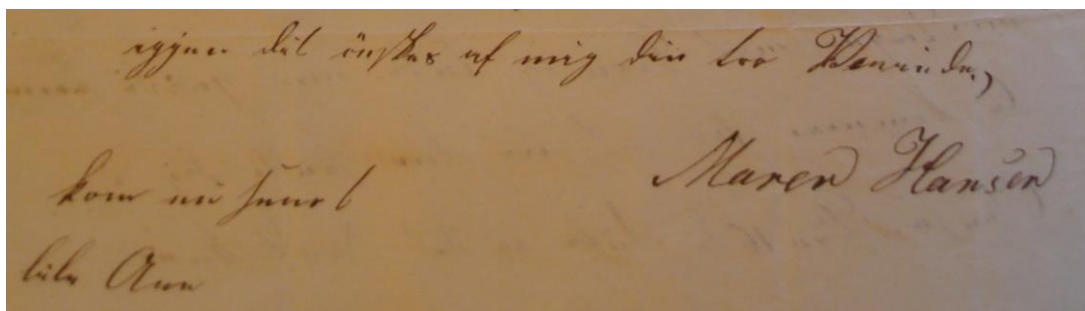 igjen det önskes af mig din tro Veninde,
Maren Hansen
kom nu snart
lile Ane